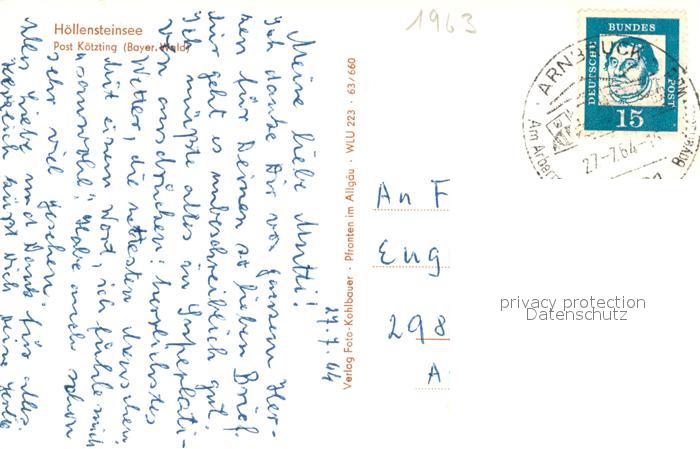 Höllensteinsee
Post Kötzting (Bayer. Wald)
1963
DEUTSCHE BUNDES POST
15
ARNBRUCK
27-7.64-
Am Arber
Bayer
Verlag Foto-Kohlbauer · Pfronten im Allgäu · WLU 223 · 63/660
27.7.64
Meine liebe Mutti!
Ich danke Dir von ganzem Her-
zen für Deinen so lieben Brief.
Mir geht es unbeschreiblich gut.
Ich müßte alles in Superlati-
ven ausdrücken: herrlichstes
Wetter, die nettesten Menschen.
Mit einem Wort, ich fühle mich
"sauwohl". Habe auch schon
sehr viel gesehen.
Alles Liebe und Dank für alles.
Herzlich grüßt Dich Deine
An F
Eng
298
A
privacy protection
Datenschutz